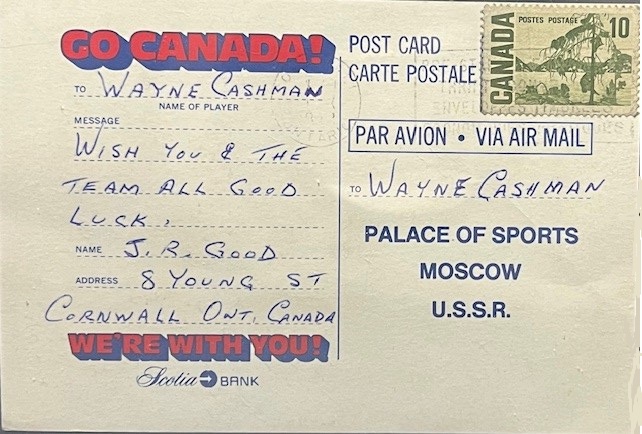 GO CANADA!
TO WAYNE CASHMAN
NAME OF PLAYER
MESSAGE
WISH YOU & THE
TEAM ALL GOOD
LUCK.
NAME J.R. GOOD
ADDRESS 8 YOUNG ST
CORNWALL ONT. CANADA
WE'RE WITH YOU!
Scotia BANK
POST CARD
CARTE POSTALE
CANADA
POSTES POSTAGE
10
PAR AVION • VIA AIR MAIL
TO WAYNE CASHMAN
PALACE OF SPORTS
MOSCOW
U.S.S.R.